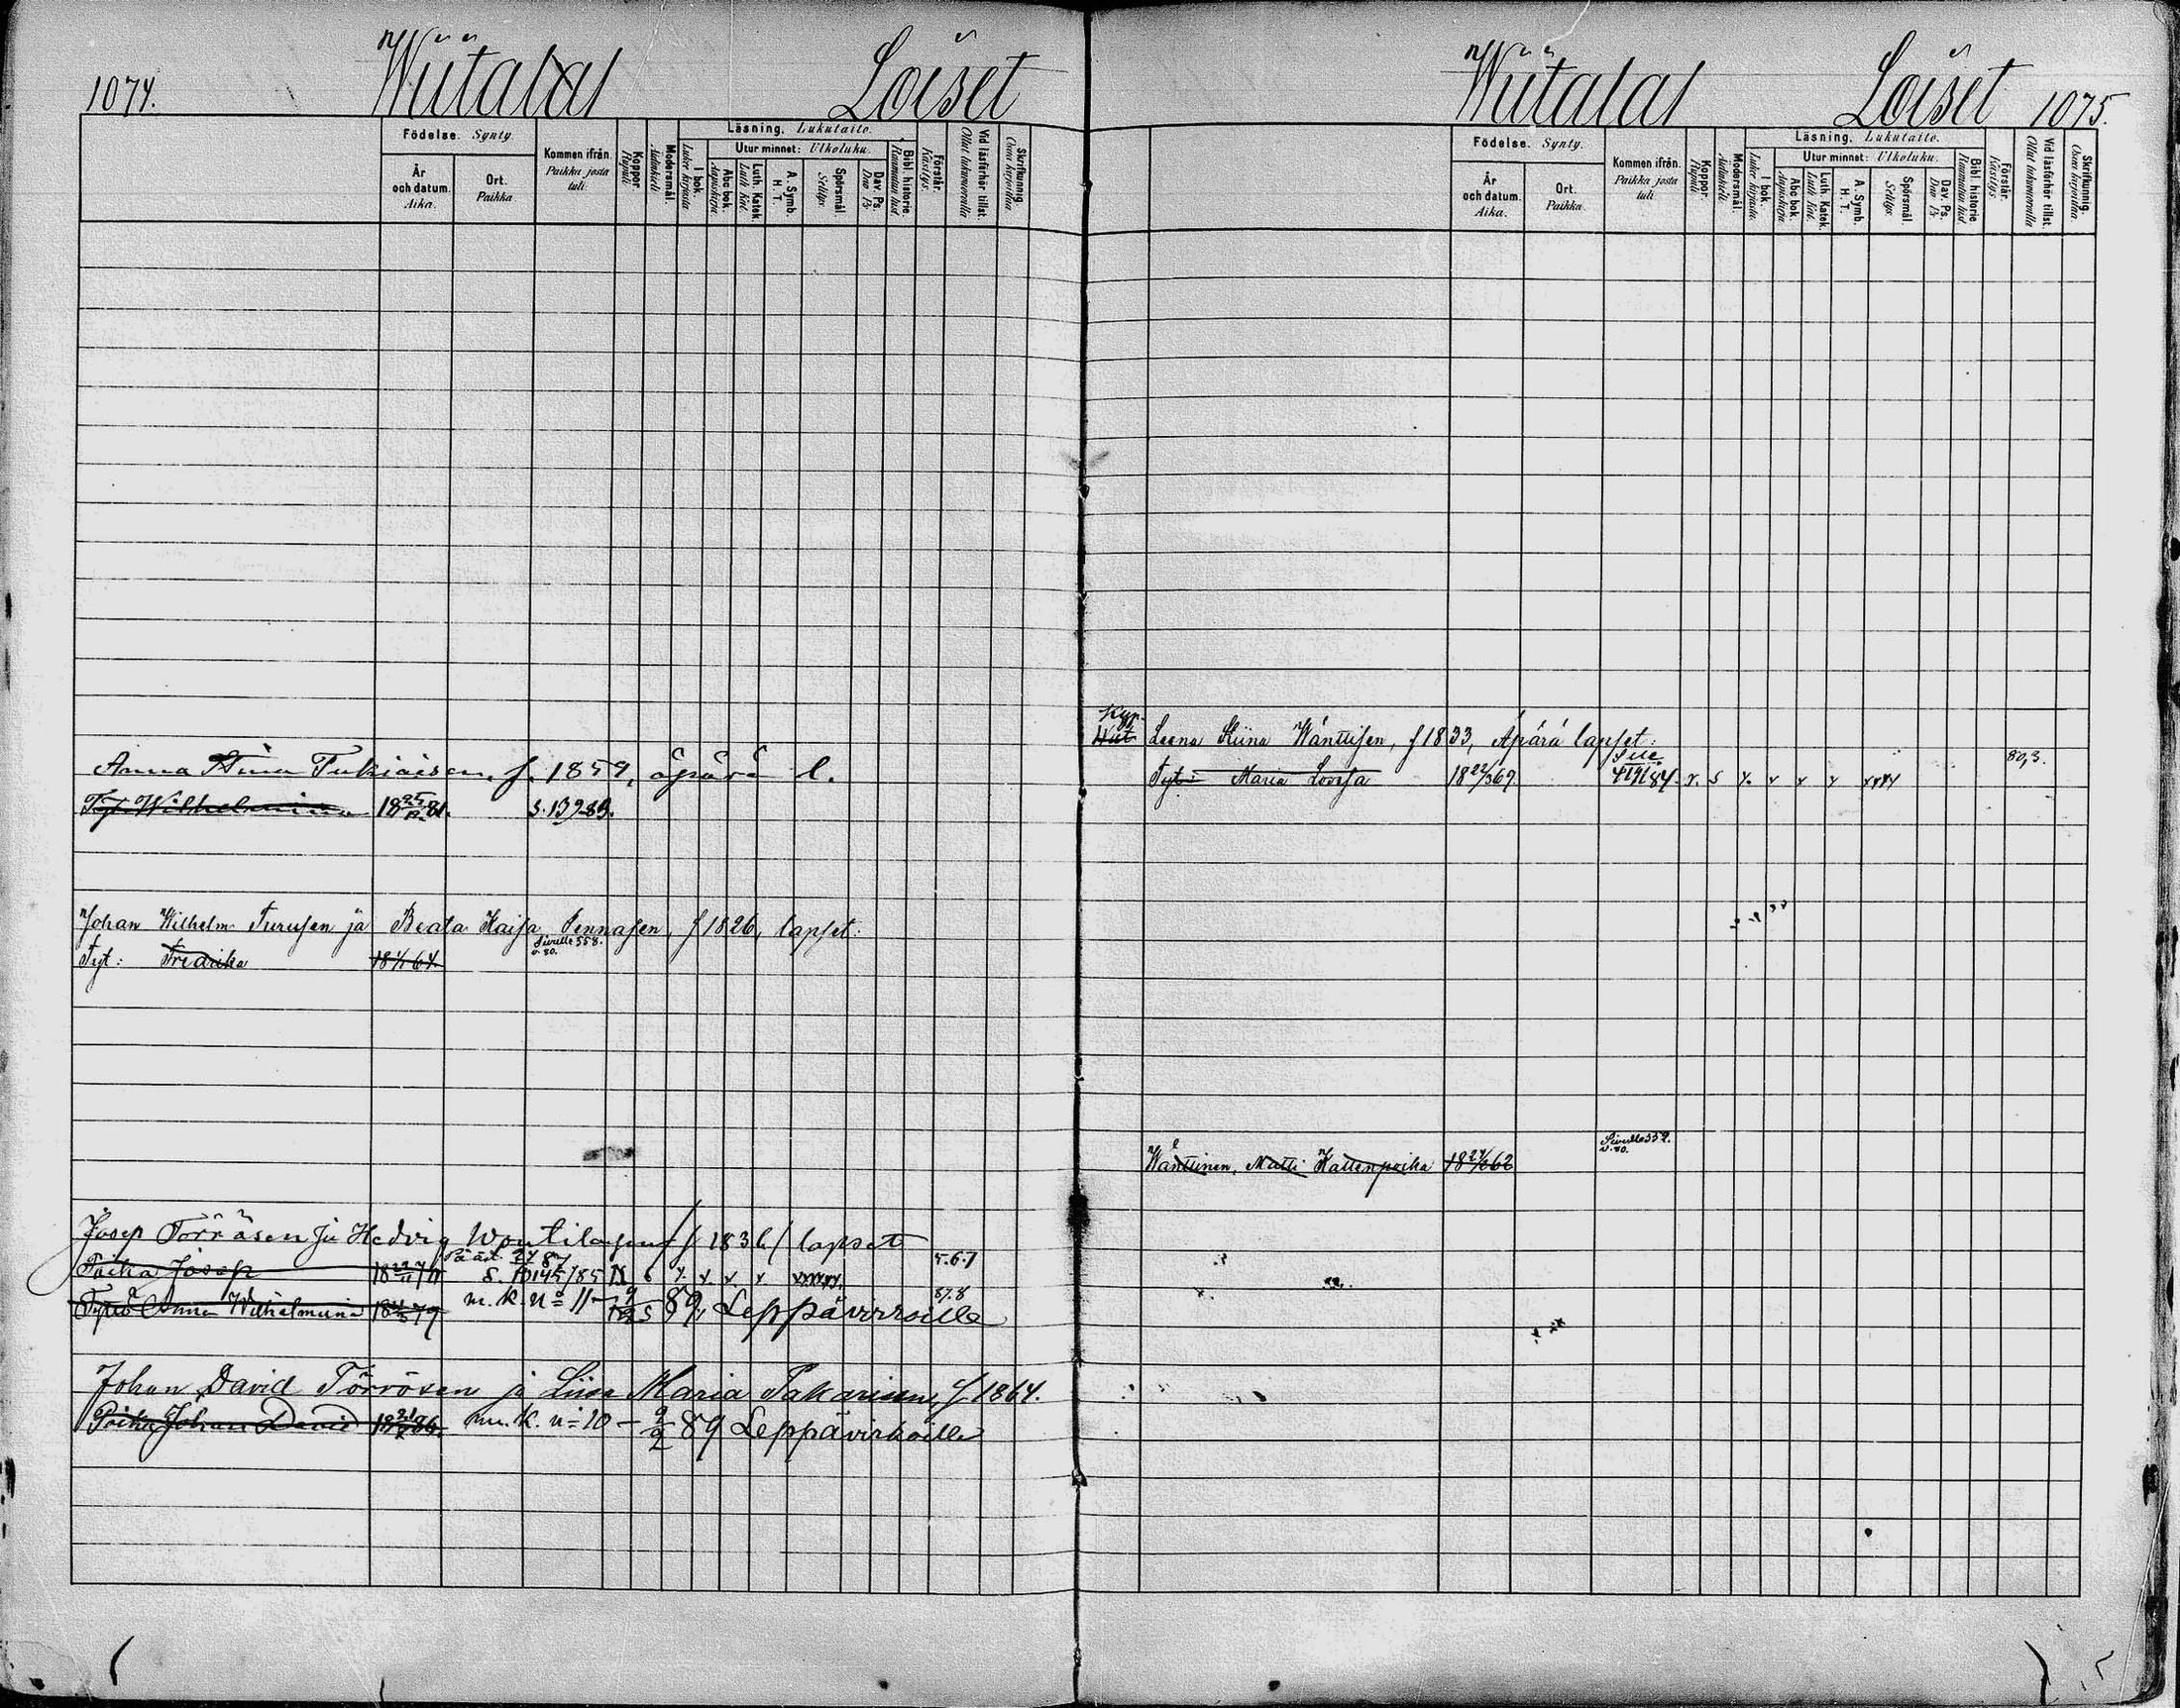 1074. Wiitala Loiset
Födelse. Synty.
År och datum. Aika.
Ort. Paikka.
Kommen ifrån. Paikka josta tuli.
Koppor. Rupuli
Modersmål. Äidinkieli
Läsning. Lukutaito.
I bok. Lukee kirjasta
Utur minnet: Ulkoluku.
Abc bok. Aapiskirja.
Luth. Katek. Luth. Kat.
A. Symb. H. T.
Spörsmål Selitys.
Dav. Ps. Dav. Ps.
Bibl. historie Raamatun hist.
Förstår. Käsitys.
Vid läsförhör tillst. Ollut lukuvuorolla
Skrifkunnig. Osaa kirjoittaa
Anna Stina Tukiaisen, f. 1859, äpärä l.
Tyt. Wilhelmina 18 81. s. 1392 83.
Johan Wilhelm Turusen ja Beata Kaisa Pennasen, f 1826, lapset:
Tyt: Fredrika 18 64 Sivulle 558. v. 80.
Josep Törräsen ja Hedvig f 1836/ lapset
Poika Josep 5.6.7
Tyttö Anna Wilhelmina 79 m. k. n:o 11 89, Leppävirroille 87.8
Johan David Törrösen ja Liisa Maria Pakarisen, f 1864.
Poika Johan David 86. m. k. n:o 10 – 9/2 89 Leppävirroille
Wiitala Loiset 1075.
Födelse. Synty.
År och datum. Aika.
Ort. Paikka.
Kommen ifrån. Paikka josta tuli.
Koppor. Rupuli
Modersmål. Äidinkieli.
Läsning. Lukutaito.
I bok. Lukee kirjasta.
Utur minnet: Ulkoluku.
Abc bok. Aapiskirja.
Luth. Katek. Luth. Kat.
A. Symb. H. T.
Spörsmål Selitys.
Dav. Ps. Dav. Ps.
Bibl. historie Raamatun hist.
Förstår. Käsitys.
Vid läsförhör tillst. Ollut lukuvuorolla
Skrifkunnig. Osaa kirjoittaa
Leena Stiina Wänttisen, f 1833, Äpärä lapset:
Tyt: Maria Loviisa 18 22/3 69. 84 80,3.
Wänttinen, Matti Mattenpoika 18 62 Sivulle 559. v. 80.